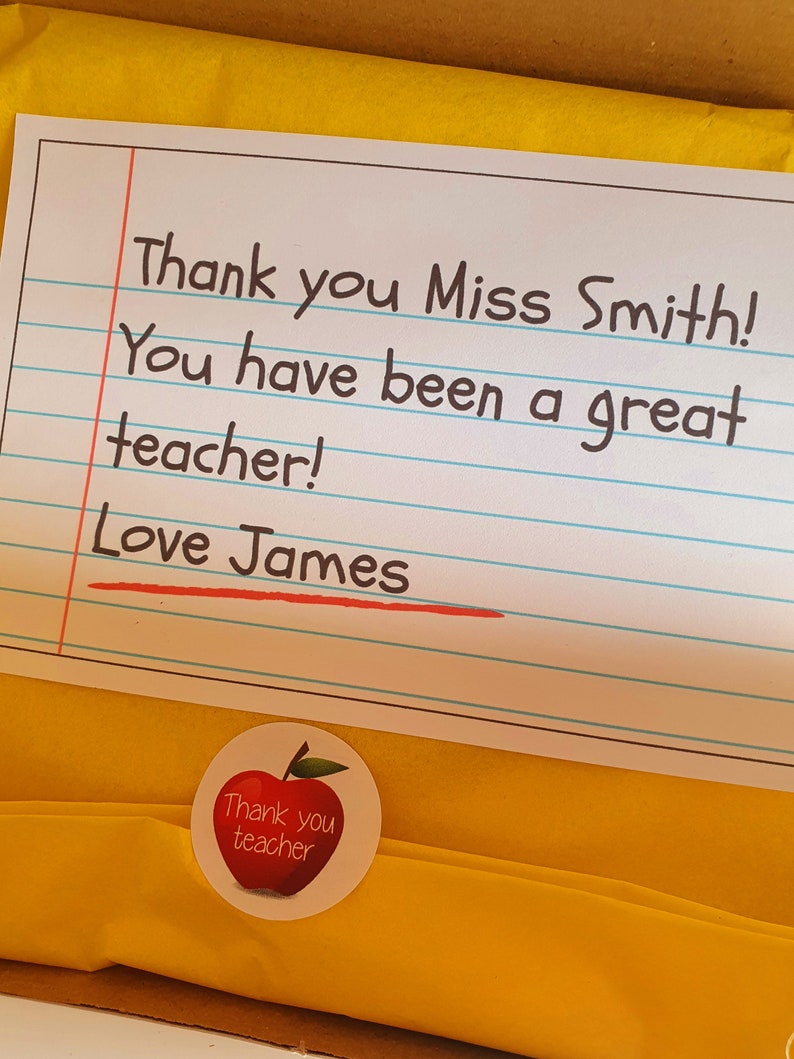 Thank you Miss Smith!
You have been a great
teacher!
Love James
Thank you
teacher